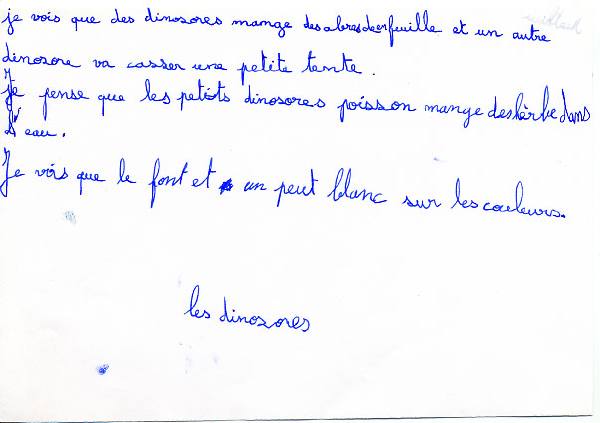 je vois que des dinosores mange des abres de er feuille et un autre
dinosore va casser une petite tente.
Je pense que les petits dinosores poisson mange des hèrbe dans
L'eau.
Je vois que le font et un peut blanc sur les couleurs.
les dinosores